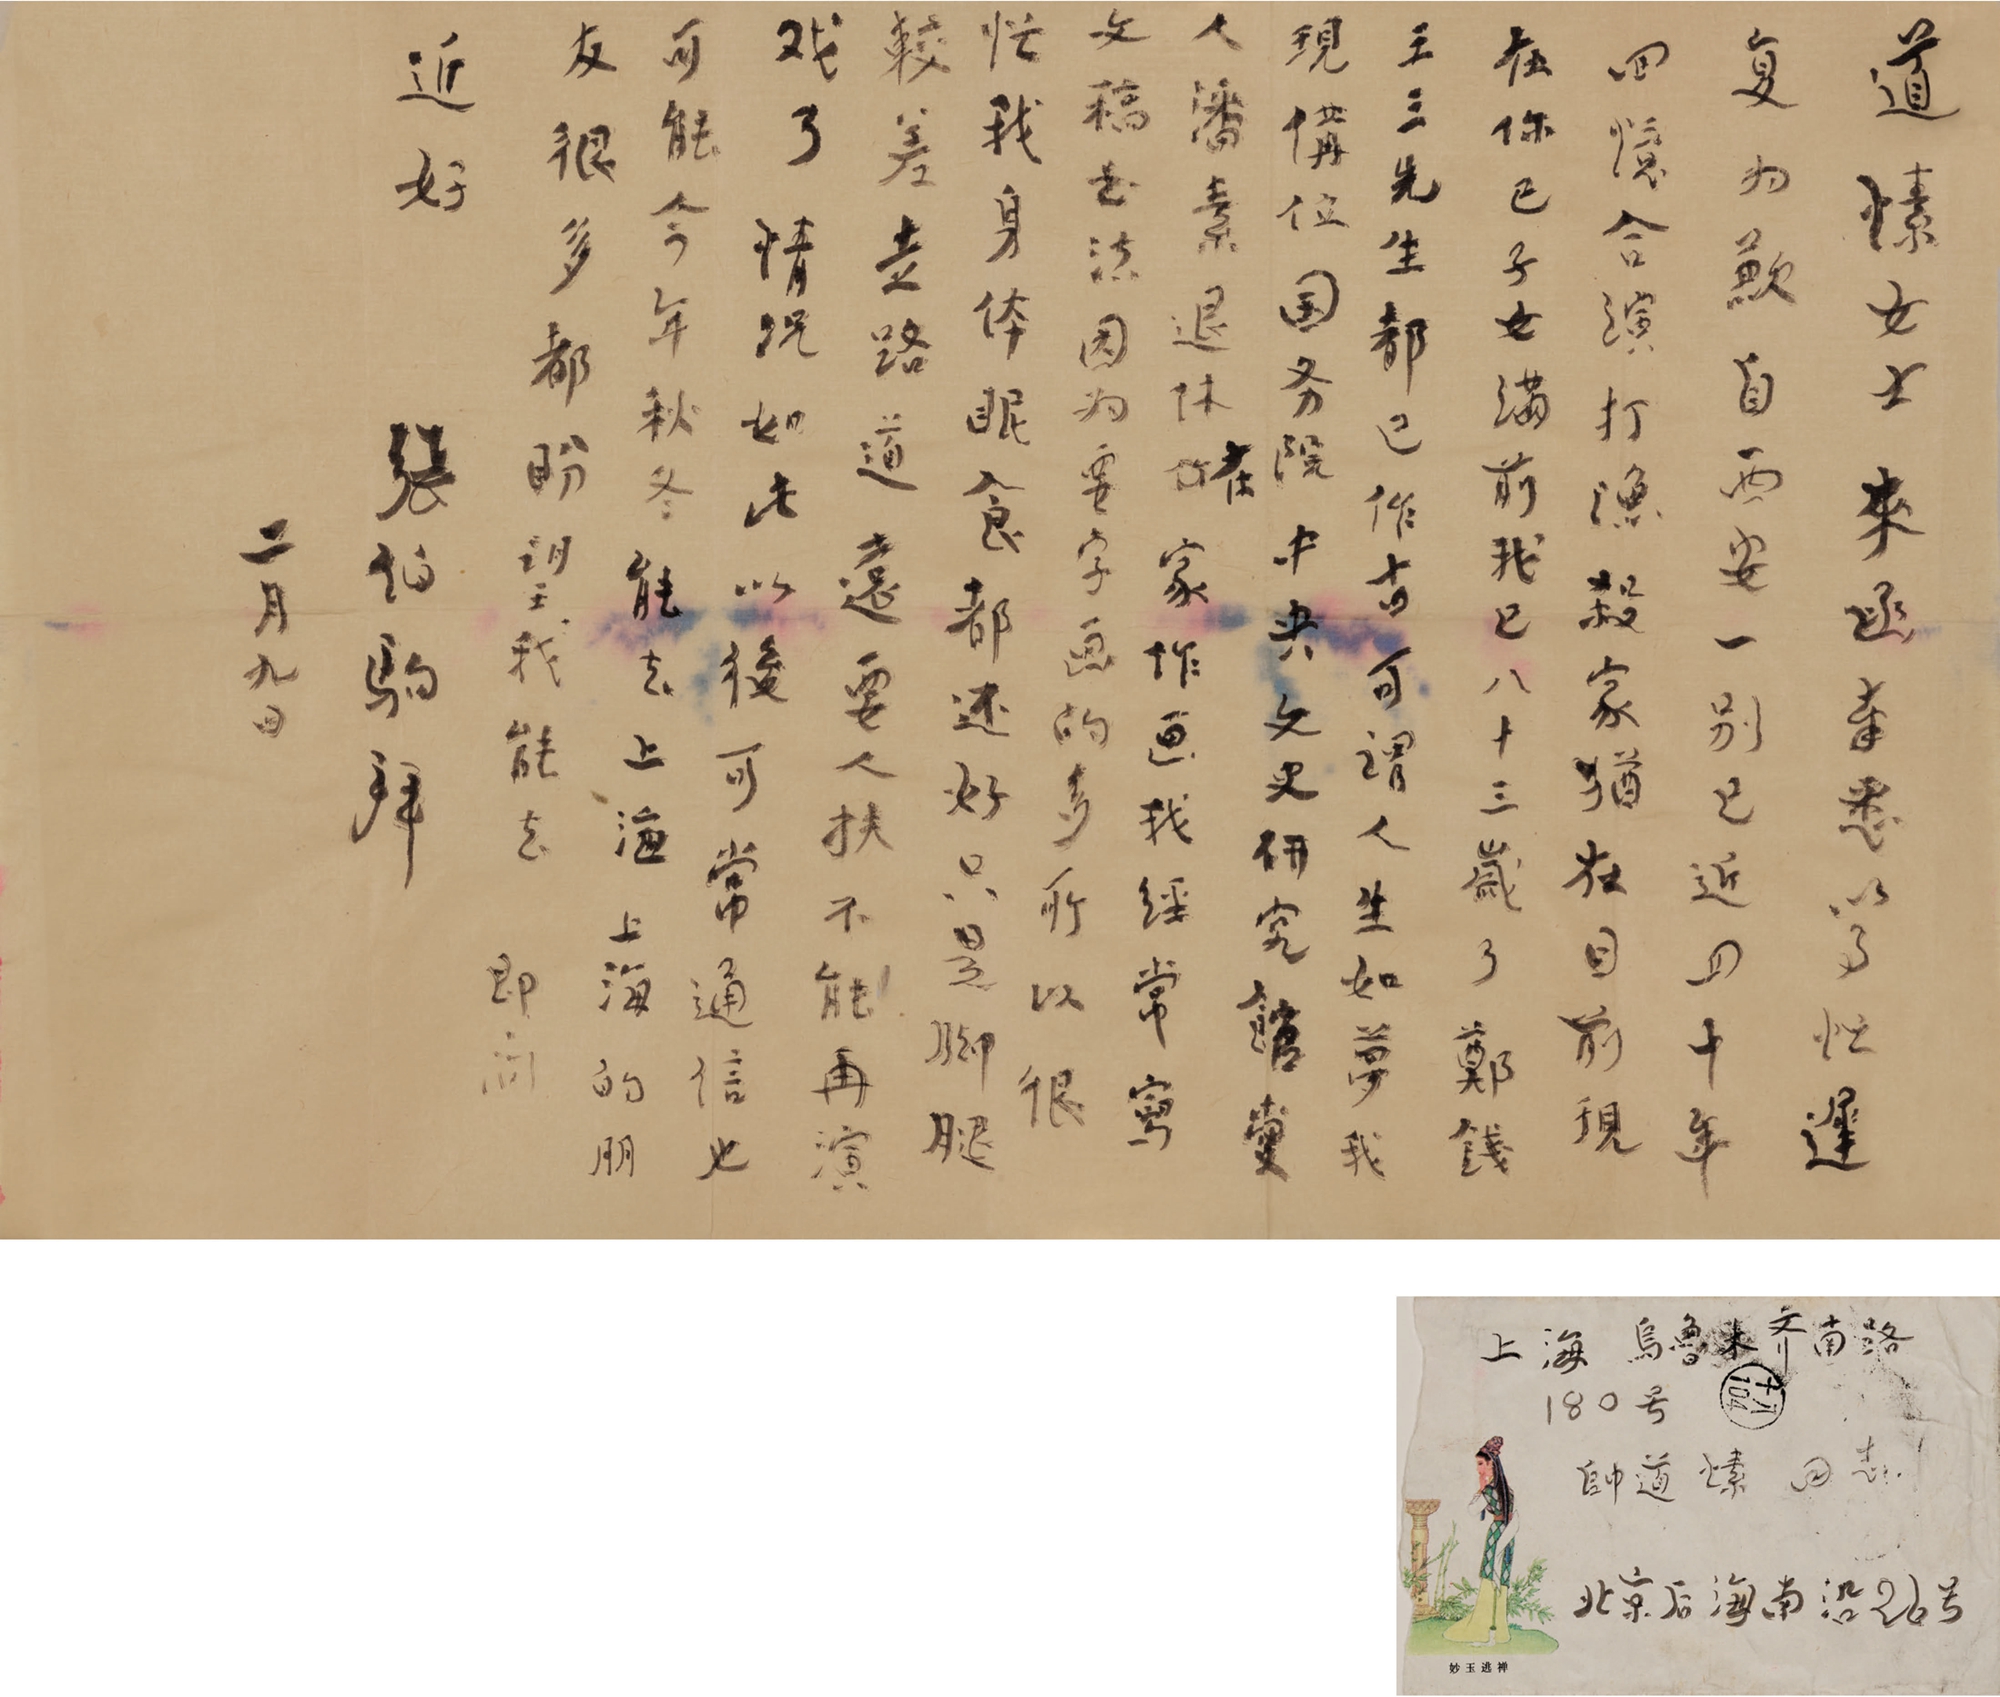 道愫女士来函幸悉以事忙遲
复为歉自西安一别已近四十年
回憶合演打漁殺家猶在目前現
在你已子女满前我已八十三歲了鄭錢
王三先生都已作古可謂人生如夢我
現備位国务院中央文史研究館爱
人潘素退休在家作画我经常寫
文稿书法因为要字画的多所以很
忙我身体眠食都还好只是脚腿
較差走路道遠要人扶不能再演
戏了情况如此以後可常通信也
可能今年秋冬能去上海上海的朋
友很多都盼望我能去即问
近好
張伯駒拜
二月九日
上海烏魯木齐南路
180号
帥道愫同志
北京后海南沿26号
妙玉逃禅